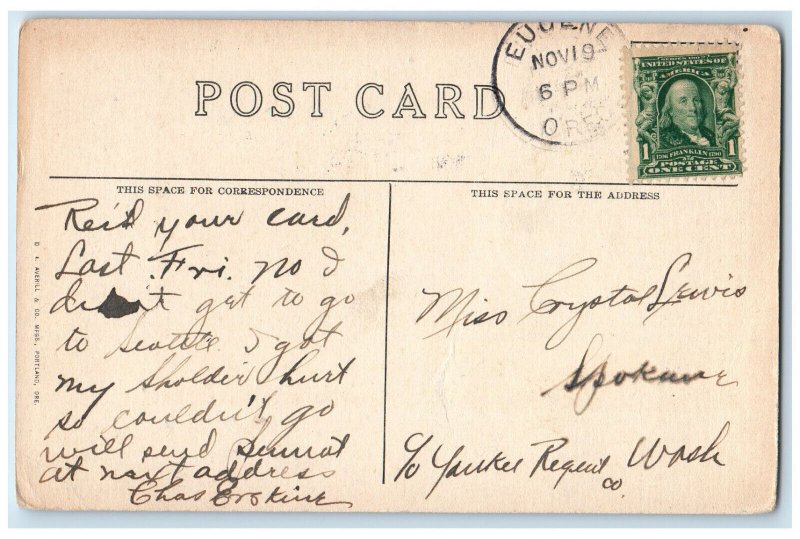 POST CARD
EUGENE
NOV 19
6 PM
ORE.
SERIES 1902
UNITED STATES OF
AMERICA
1706 FRANKLIN 1790
1 POSTAGE 1
ONE CENT
THIS SPACE FOR CORRESPONDENCE
THIS SPACE FOR THE ADDRESS
Rec'd your card,
Last Fri. no I
didn't get to go
to Seattle I got
my Sholder hurt
so couldn't, go
will send pennat
at next address
Chas Erskine
Miss Crystal Lewis
Spokane
c/o Yankee Regent Wash
co.
AVERILL & CO. MFRS., PORTLAND, ORE.